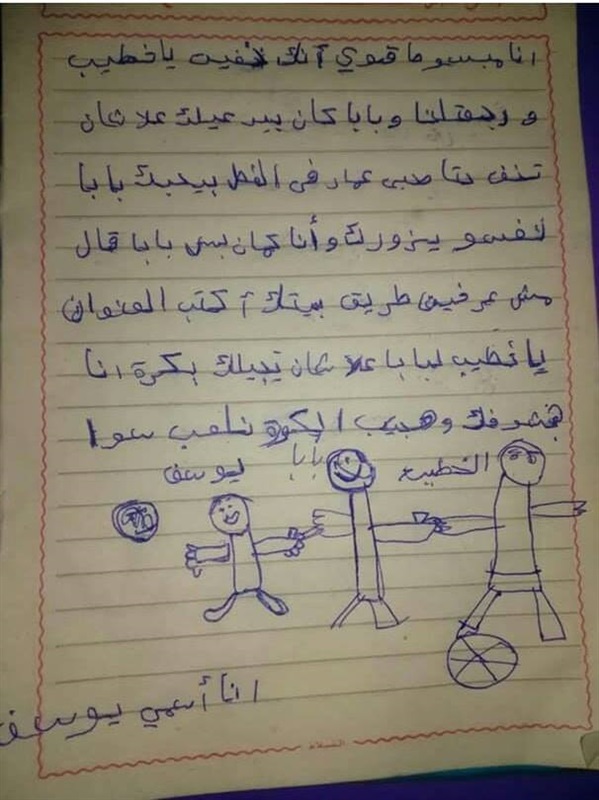 انا مبسوط قوي أنك خفيت يا خطيب
و رجعتلنا و بابا كان بيدعيلك علا شان
تخف حتا صحبي عمار في الفصل بيحبك بابا
نفسو يزورك وأنا كمان بس بابا قال
مش عرفين طريق بيتك أكتب العنوان
يا خطيب لبابا علا شان نجيلك بكرة انا
هشوفك وهجيب الكورة نلعب سوا
الخطيب
بابا
يوسف
انا أسمي يوسف
السلام